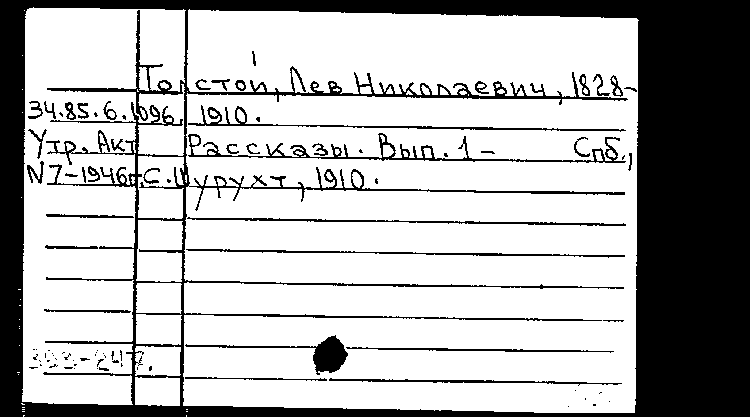 Толстой, Лев Николаевич, 1828-
34.85.6.1096. 1910.
Утр. Акт Рассказы. Вып. 1 - Спб.,
N7-1946г. С. Шурухт, 1910.
393-247.